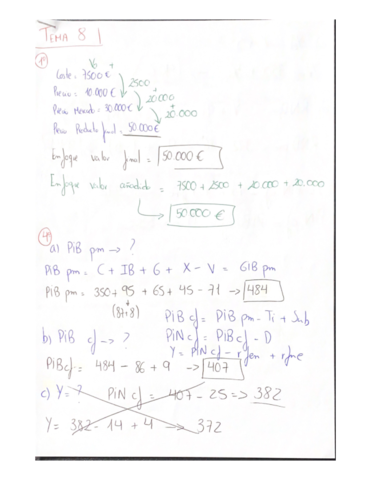 TEMA 8
1º
V6 +
Coste = 7500 €
2500
Precio = 10.000 €
20.000
Precio Mercado = 30.000 €
20.000
Precio Producto final = 50.000 €
Enfoque valor final = 50.000 €
Enfoque valor añadido = 7500 + 2500 + 20.000 + 20.000
50.000 €
4º
a) PiB pm → ?
PiB pm = C + IB + G + X - V = GIB pm
PiB pm = 350 + 95 + 65 + 45 - 71 → 484
(87+8)
PiB cf = PiB pm - Ti + Sub
b) PiB cf → ?
PiN cf = PiB cf - D
Y = PiN cf - rfem + rfne
PiB cf = 484 - 86 + 9 → 407
c) Y = ? PiN cf = 407 - 25 => 382
Y = 382 - 14 + 4 → 372